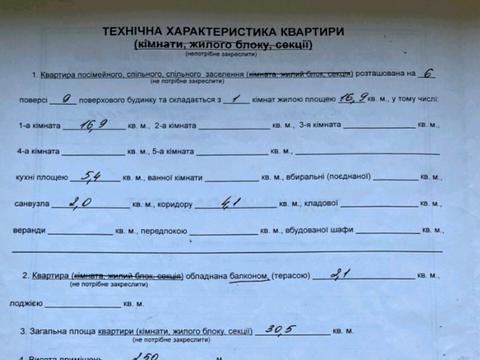 ТЕХНІЧНА ХАРАКТЕРИСТИКА КВАРТИРИ
(кімнати, жилого блоку, секції)
(непотрібне закреслити)
1. Квартира посімейного, спільного, спільного заселення (кімната, жилий блок, секція) розташована на 6
(не потрібне закреслити)
поверсі 9 поверхового будинку та складається з 1 кімнат жилою площею 16,9 кв. м., у тому числі:
1-а кімната 16,9 кв. м., 2-а кімната кв. м., 3-я кімната кв. м.,
4-а кімната кв. м., 5-а кімната кв. м.,
кухні площею 5,4 кв. м., ванної кімнати кв. м., вбиральні (поєднаної) кв. м.,
санвузла 2,0 кв. м., коридору 4,1 кв. м., кладової кв. м.,
веранди кв. м., передпокою кв. м., вбудованої шафи кв. м.,
2. Квартира (кімната, жилий блок, секція) обладнана балконом, (терасою) 2,1 кв. м.,
(не потрібне закреслити)
лоджією кв. м.
3. Загальна площа квартири (кімнати, жилого блоку, секції) 30,5 кв. м.
(не потрібне закреслити)
4. Висота приміщень 250 м.